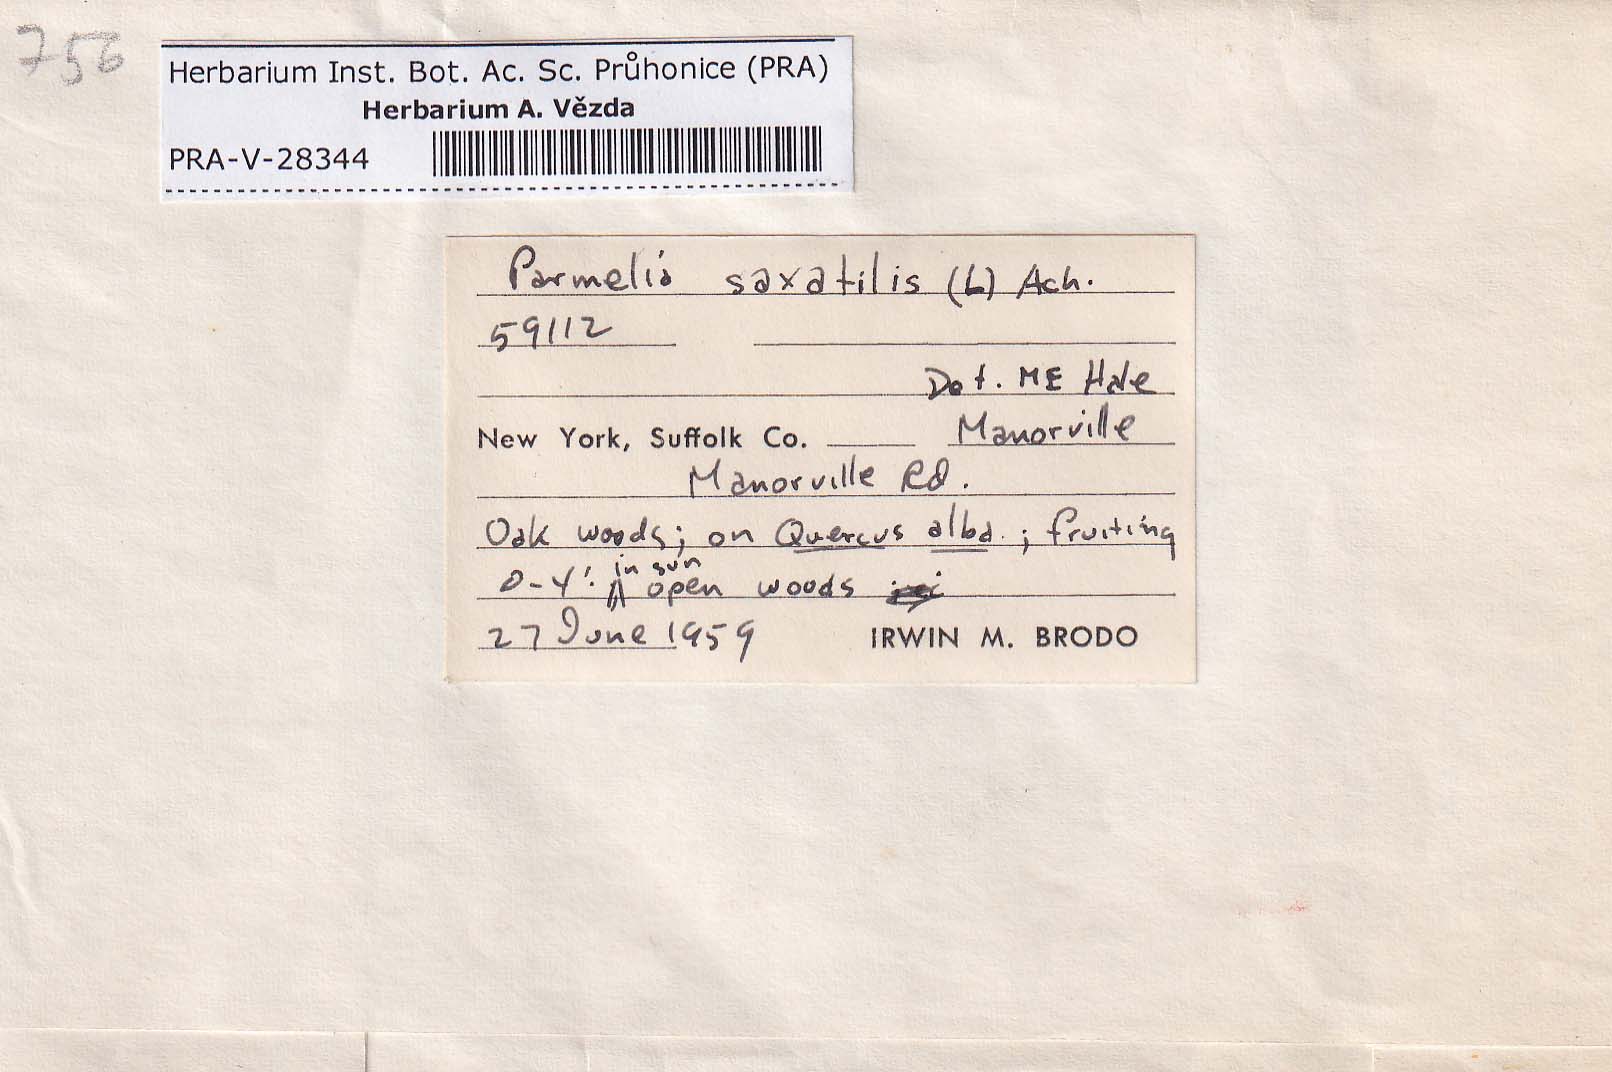 756
Herbarium Inst. Bot. Ac. Sc. Průhonice (PRA)
Herbarium A. Vězda
PRA-V-28344
Parmelia saxatilis (L) Ach.
59112
Det. ME Hale
New York, Suffolk Co. Manorville
Manorville Rd.
Oak woods; on Quercus alba.; fruiting
in sun
0-4'. open woods
27 June 1959 IRWIN M. BRODO